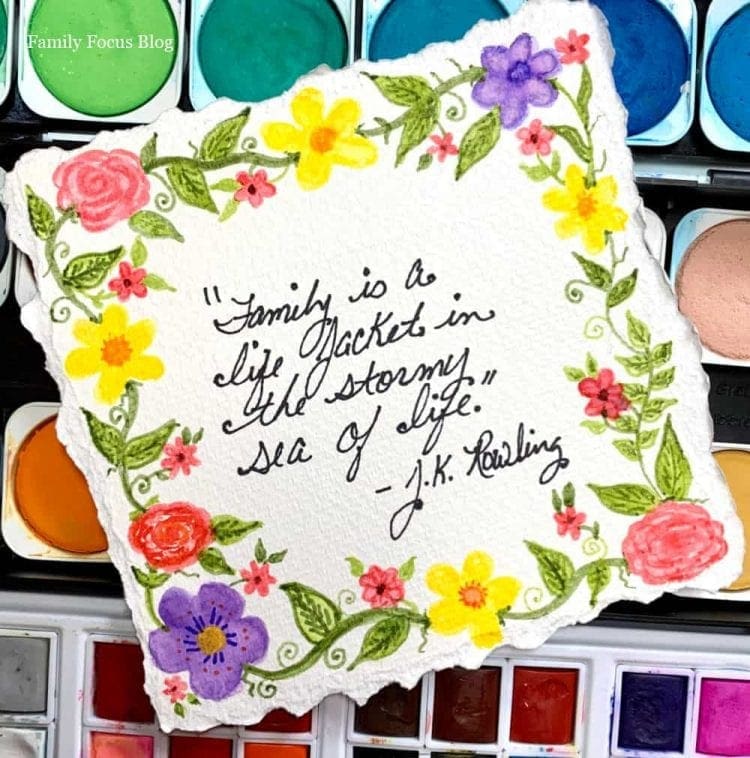 Family Focus Blog
"Family is a
life Jacket in
the stormy
sea of life."
- J.K. Rowling